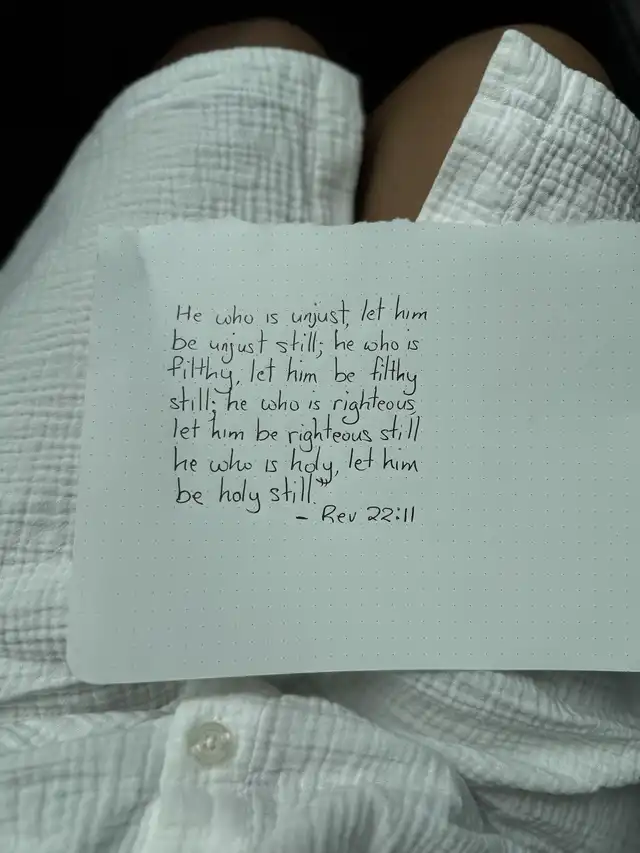 He who is unjust, let him
be unjust still; he who is
filthy, let him be filthy
still; he who is righteous,
let him be righteous still
he who is holy, let him
be holy still."
- Rev 22:11